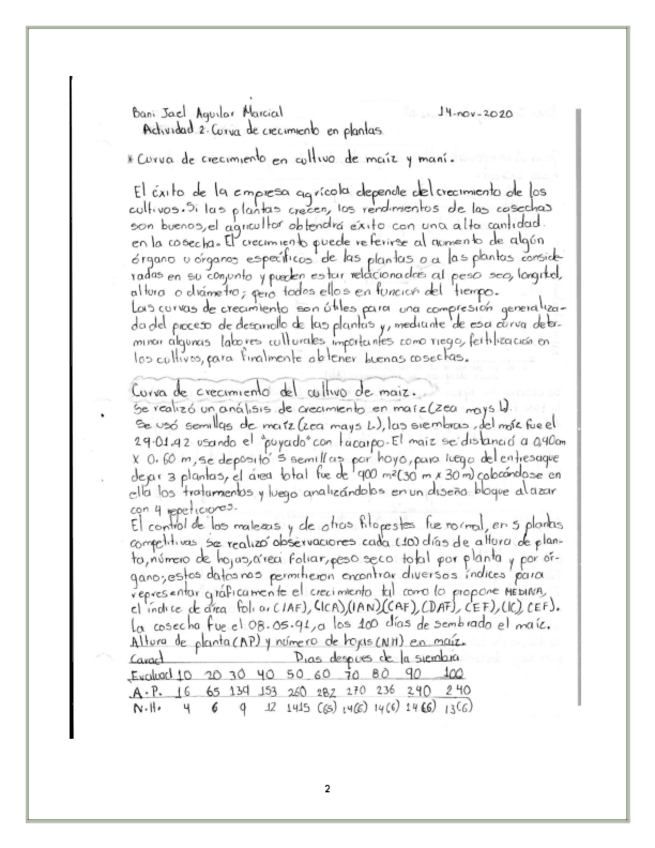 Bani Jael Aguilar Marcial 14-nov-2020
Actividad 2. Curva de crecimiento en plantas
* Curva de crecimiento en cultivo de maíz y maní.
El éxito de la empresa agrícola depende del crecimiento de los
cultivos. Si las plantas crecen, los rendimientos de las cosechas
son buenos, el agricultor obtendrá éxito con una alta cantidad
en la cosecha. El crecimiento puede referirse al aumento de algún
órgano u órganos específicos de las plantas o a las plantas conside-
radas en su conjunto y pueden estar relacionadas al peso seco, longitud,
altura o diámetro; pero todos ellos en función del tiempo.
Las curvas de crecimiento son útiles para una compresión generaliza-
da del proceso de desarrollo de las plantas y, mediante de esa curva deter-
minar algunas labores culturales importantes como riego, fertilización en
los cultivos, para finalmente obtener buenas cosechas.
Curva de crecimiento del cultivo de maiz.
Se realizó un análisis de crecimiento en maíz (zea mays L).
Se usó semillas de maíz (zea mays L), las siembras, del maíz fue el
29-01.92 usando el "puyado" con tacarpo. El maiz se distanció a 0,40cm
X 0.60 m, se depositó 5 semillas por hoyo, para luego del entresaque
dejar 3 plantas, el área total fue de 900 m² (30 m x 30 m) colocándose en
ella los tratamientos y luego analizándolos en un diseño bloque al azar
con 4 repeticiones.
El control de las malezas y de otras fitopestes fue normal, en 5 plantas
competitivas se realizó observaciones cada (10) días de altura de plan-
ta, número de hojas, área foliar, peso seco total por planta y por ór-
gano; estos datos nos permitieron encontrar diversos índices para
representar gráficamente el crecimiento tal como lo propone MEDINA,
el índice de área foliar (IAF), (ICA), (IAN) (CAF), (DAF), (EF), (IC), CEF).
La cosecha fue el 08-05-92, a los 100 días de sembrado el maíz.
Altura de planta (AP) y número de hojas (NH) en maíz.
Caract Dias despues de la siembra
Evaluad 10 20 30 40 50 60 70 80 90 100
A.P. 16 65 139 153 260 282 270 236 240 240
N.H. 4 6 9 12 1415 (65) 14(6) 14(6) 14(6) 13(6)
2